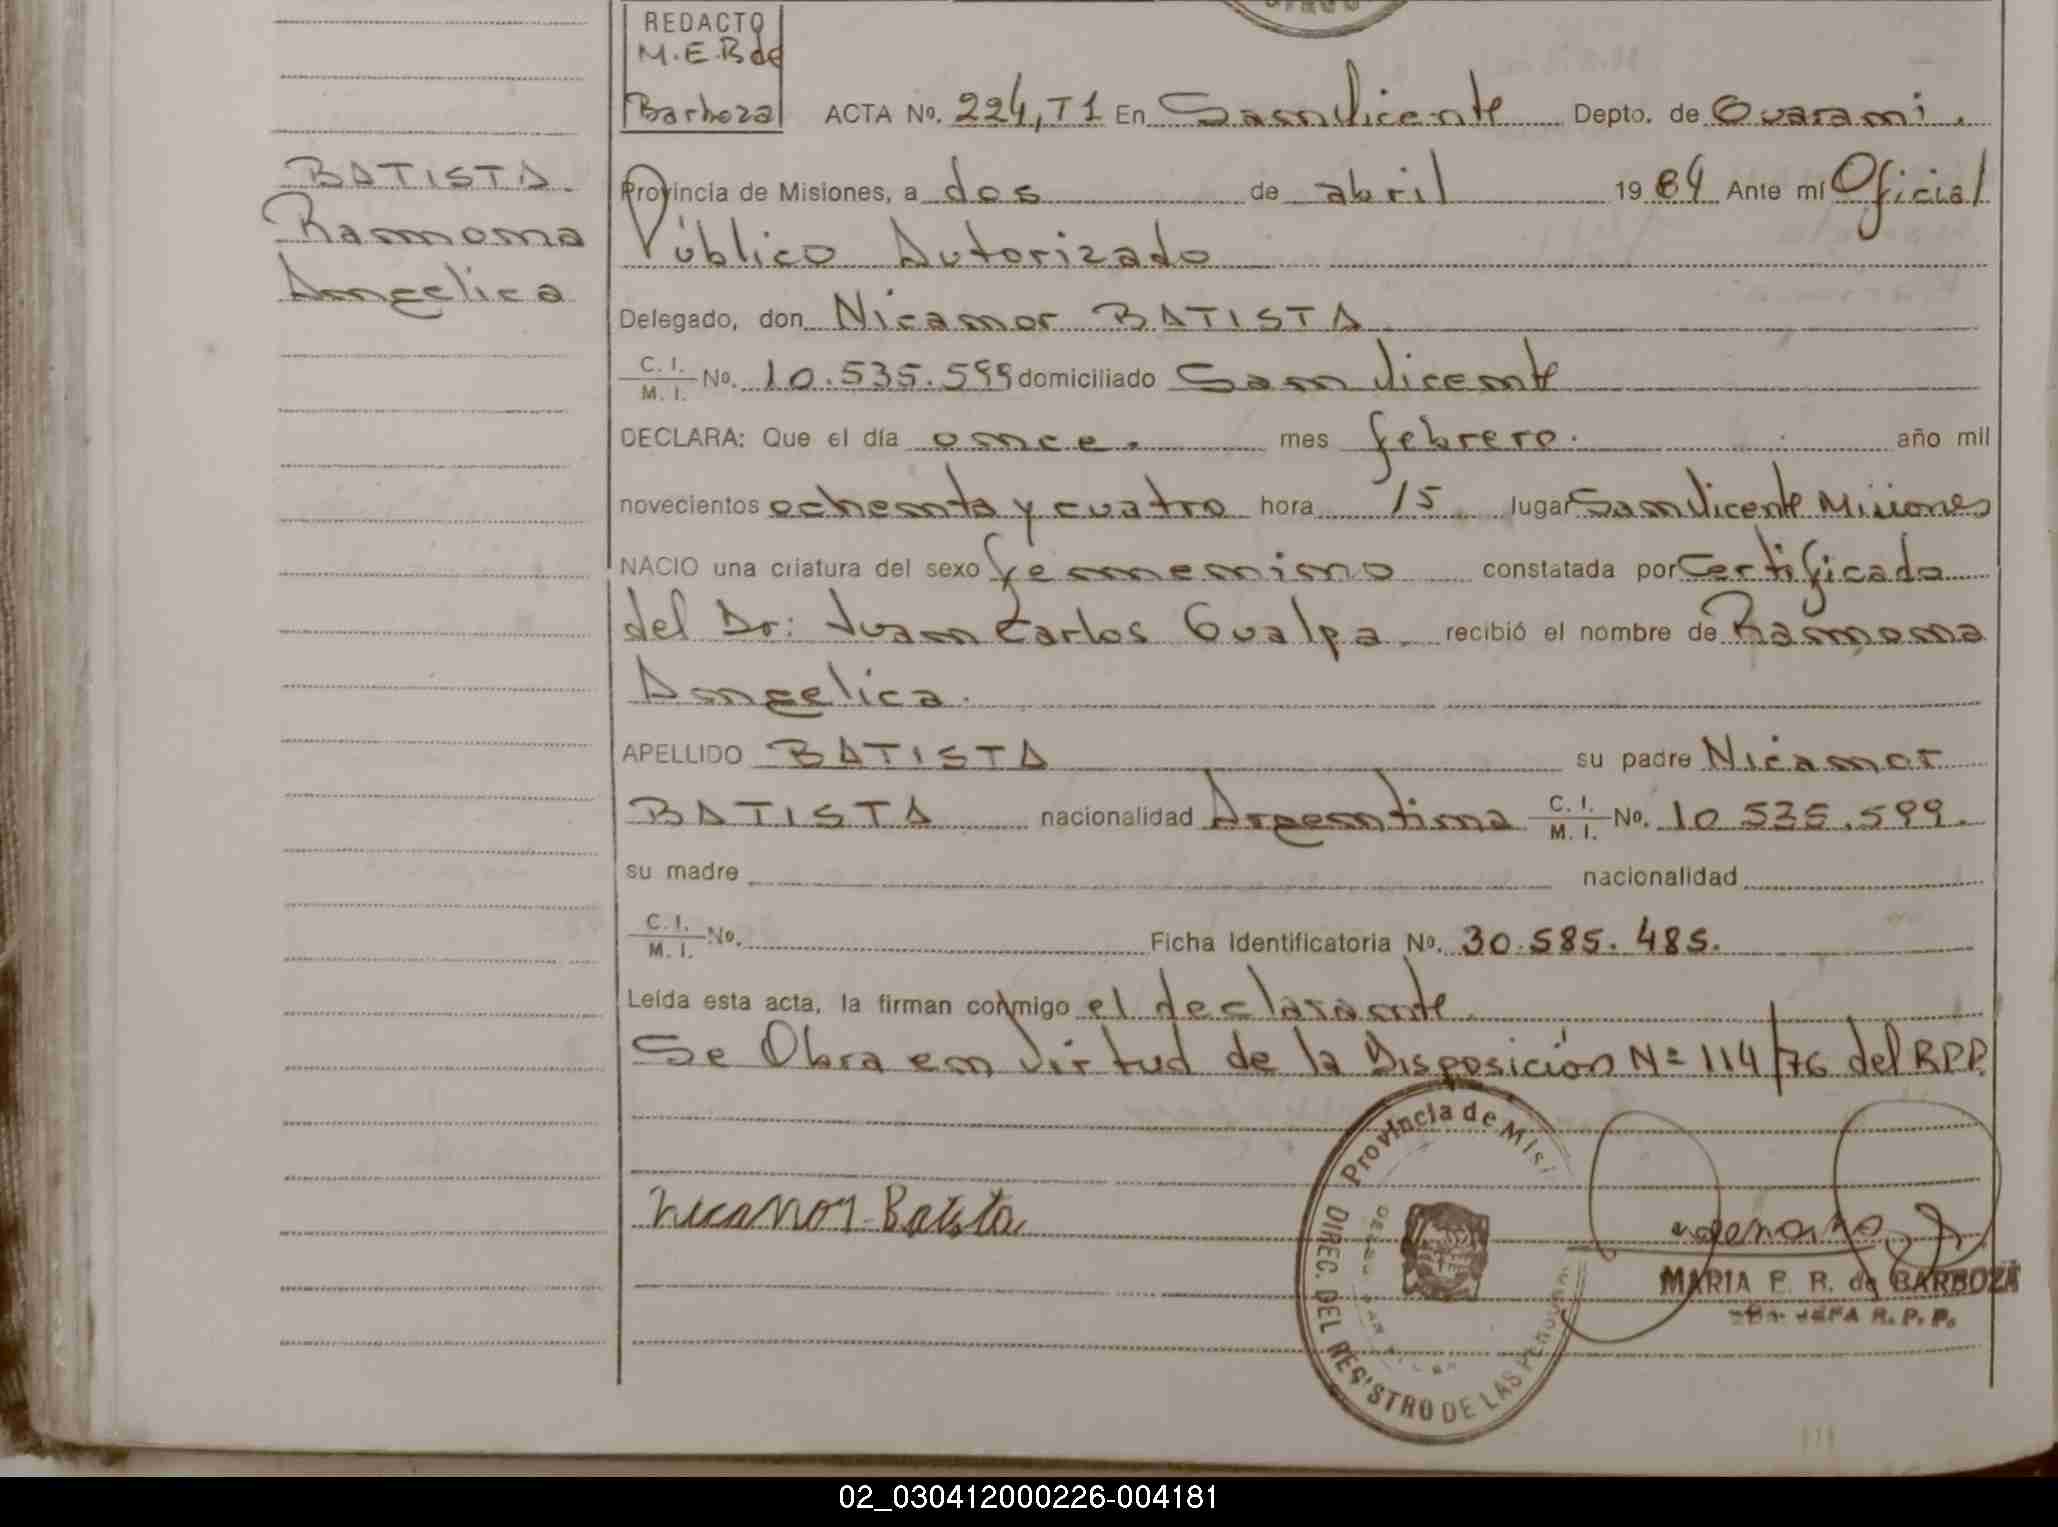 REDACTO
M.E.B de
Barboza
ACTA No. 224, T1 En San Vicente Depto. de Guarani.
Provincia de Misiones, a dos de abril 1984 Ante mí Oficial
Público Autorizado
Delegado, don Nicanor BATISTA
C. I. / M. I. No. 10.535.599 domiciliado San Vicente
DECLARA: Que el día once. mes febrero. año mil
novecientos ochenta y cuatro hora 15 lugar San Vicente Misiones
NACIO una criatura del sexo femenino constatada por Certificado
del Dr: Juan Carlos Gualpa recibió el nombre de Ramona
Angelica.
APELLIDO BATISTA su padre Nicanor
BATISTA nacionalidad Argentina C. I. / M. I. No. 10 535.599.
su madre nacionalidad
C. I. / M. I. No. Ficha Identificatoria No. 30.585.485.
Leída esta acta, la firman conmigo el declarante
Se Obra en virtud de la Disposición Nº 114/76 del RPP.
BATISTA
Ramona
Angelica
Nicanor Batista
Provincia de Misi
DIREC. DEL REGISTRO DE LAS PERSONAS
MARIA E. R. de BARBOZA
JEFA R. P. P.
02_030412000226-004181